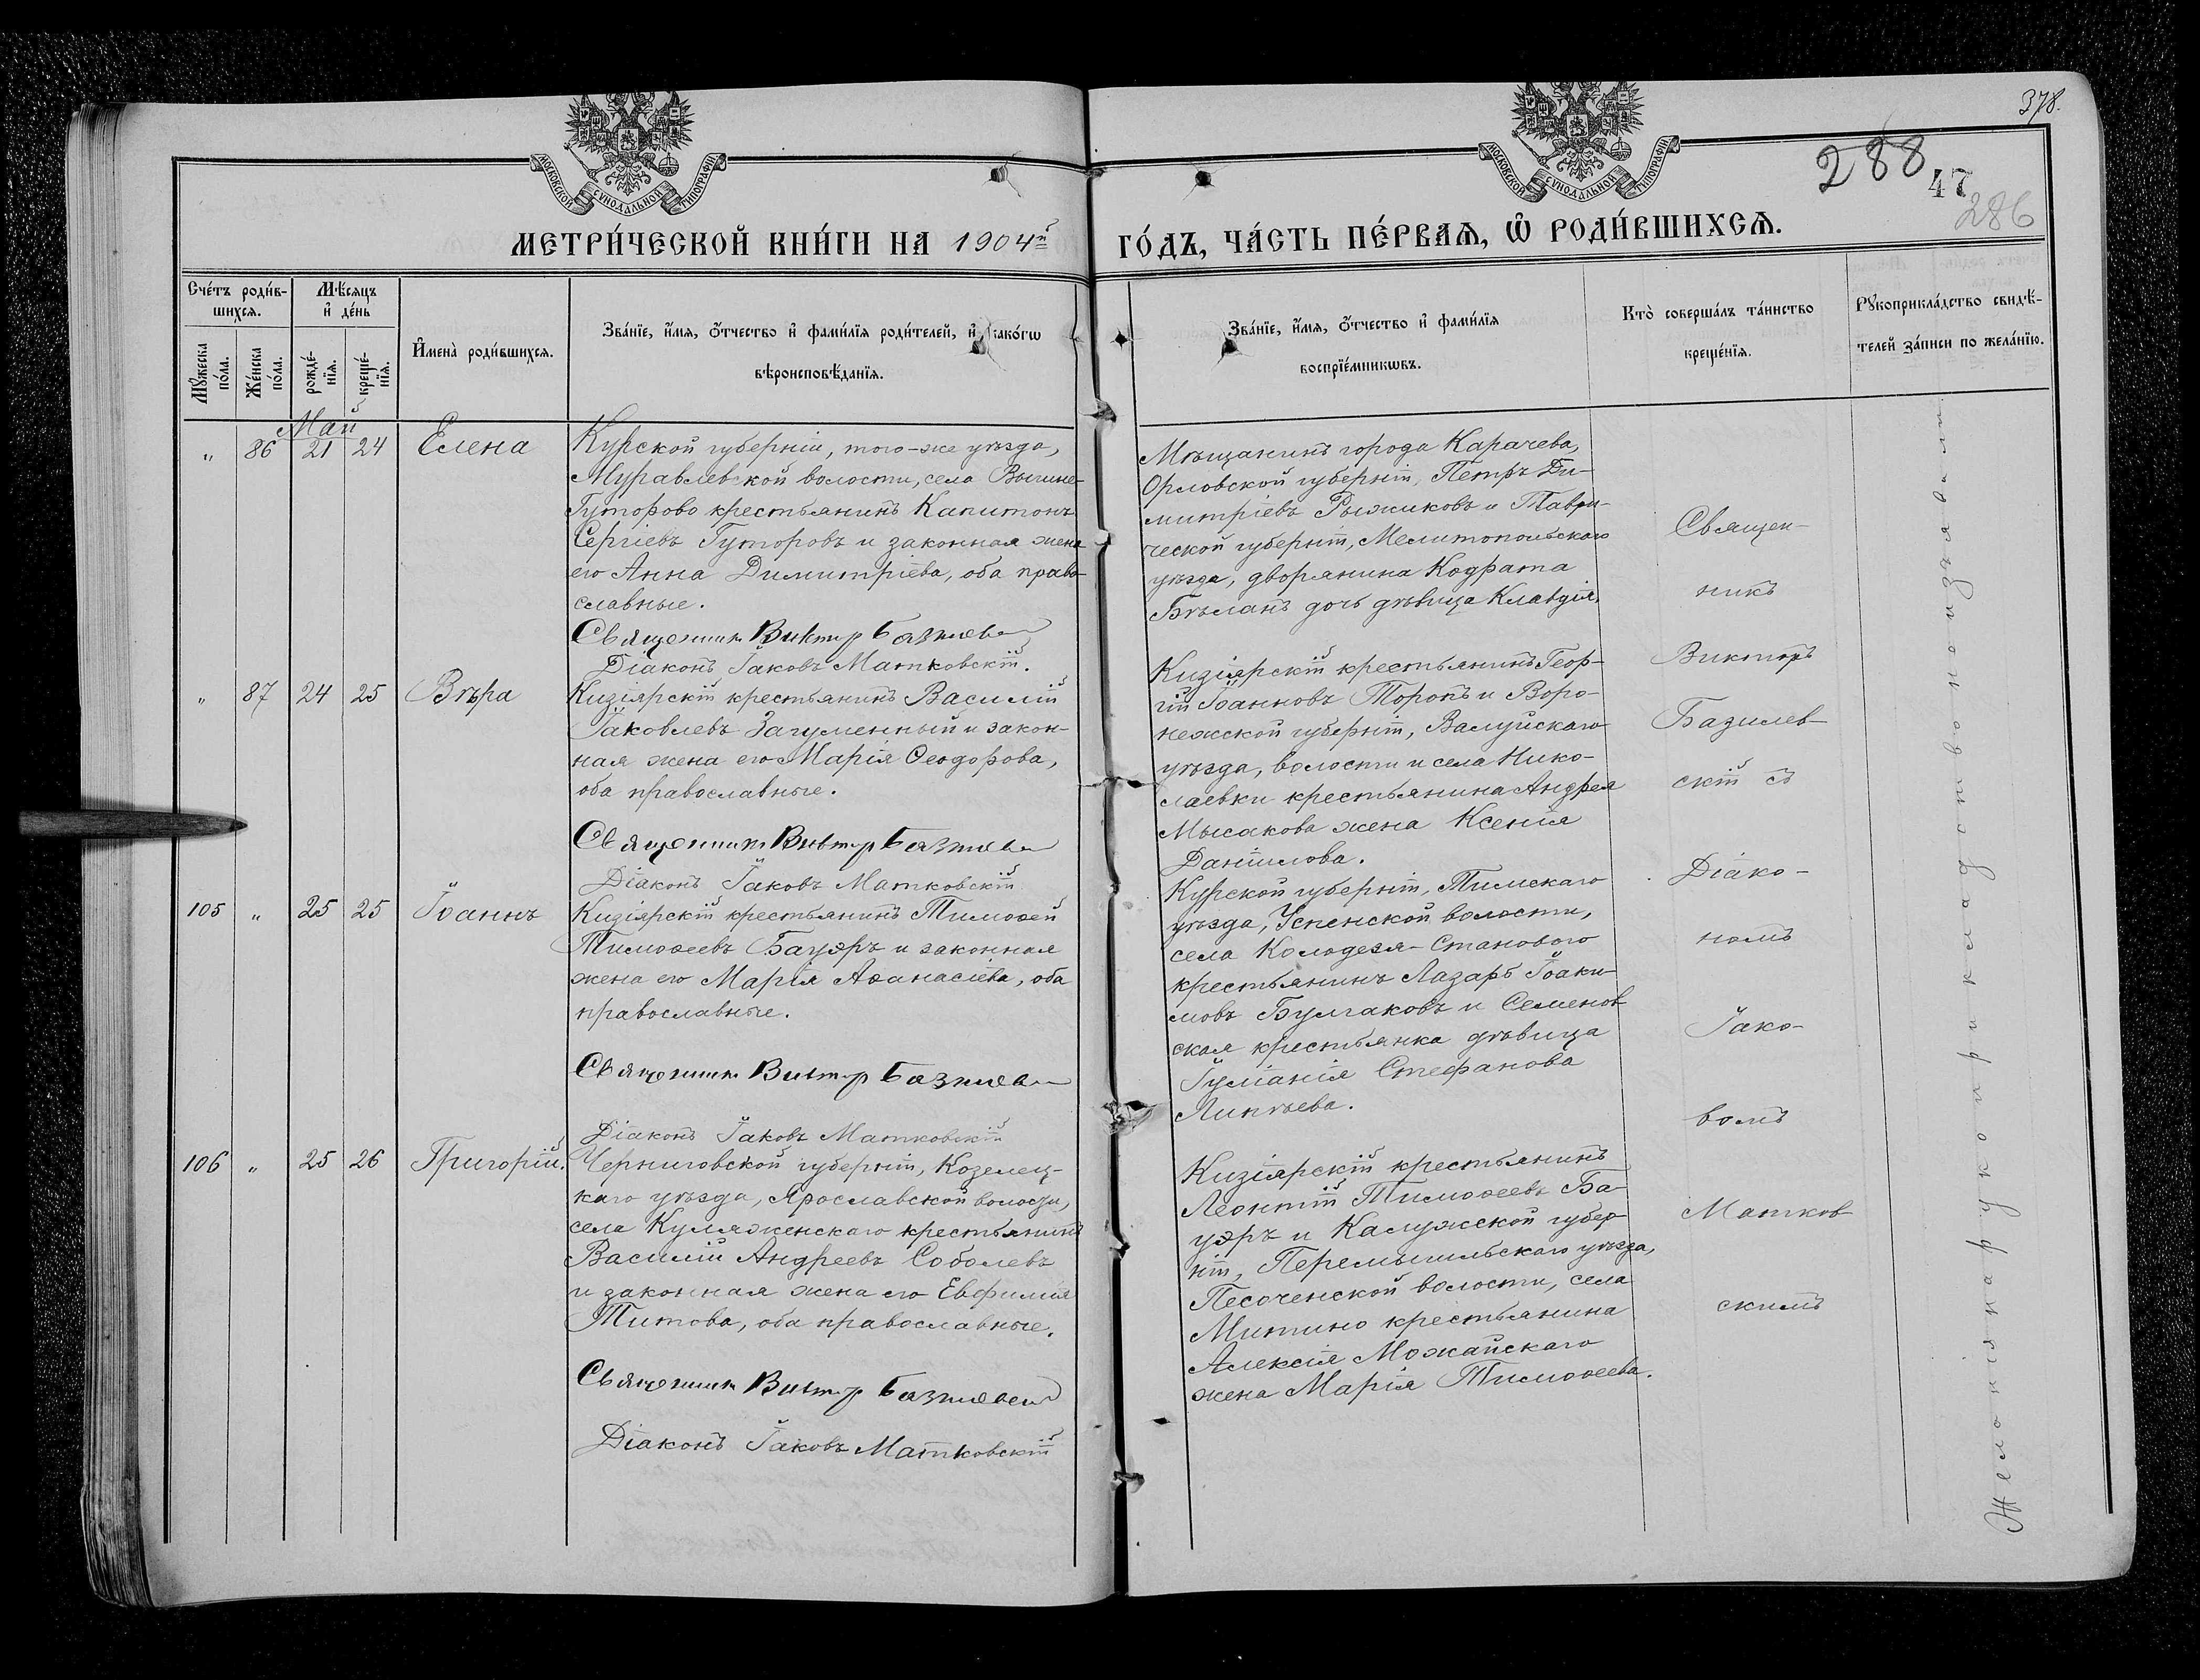 378.
288
47
286
МОСКОВСКОЙ СУНОДАЛЬНОЙ ТИПОГРАФІИ
МОСКОВСКОЙ СУНОДАЛЬНОЙ ТИПОГРАФІИ
МЕТРИ́ЧЕСКОЙ КНИ́ГИ НА 1904й
ГО́ДЪ, ЧА́СТЬ ПЕ́РВАѦ, Ѡ҆ РОДИ́ВШИХСѦ.
Сче́тъ роди́в-
шихсѧ.
Мꙋ́жеска
по́ла.
Же́нска
по́ла.
Мѣ́сѧцъ
и҆ де́нь
рожде́-
нїѧ.
креще́-
нїѧ.
И҆мена̀ роди́вшихсѧ.
Зва́нїе, и҆́мѧ, ѻ҆́тчество и҆ фами́лїѧ роди́телей, и҆ како́гѡ
вѣроисповѣ́данїѧ.
Зва́нїе, и҆́мѧ, ѻ҆́тчество и҆ фами́лїѧ
воспрїе́мникѡвъ.
Кто̀ соверша́лъ та́инство
креще́нїѧ.
Рꙋкоприкла́дство свидѣ́-
телей за́писи по жела́нїю.
Май
„ 86 21 24 Елена
Курской губерніи, того-же уѣзда,
Муравлевской волости, села
Гуторово крестьянинъ Капитонъ
Сергіевъ Гуторовъ и законная жена
его Анна Димитріева, оба право-
славные.
Священник Виктор Базилев
Діаконъ Іаковъ Матковскій.
Мѣщанинъ города Карачева,
Орловской губерніи, Петръ Ди-
митріевъ Рыжиковъ и Таври-
ческой губерніи, Мелитопольскаго
уѣзда, дворянина Кодрата
Бѣланъ дочь дѣвица Клавдія.
„ 87 24 25 Вѣра
Кизіярскій крестьянинъ Василій
Іаковлевъ Загуменный и закон-
ная жена его Марія Ѳеодорова,
оба православные.
Священник Виктор Базилев
Діаконъ Іаковъ Матковскій
Кизіярскій крестьянинъ Геор-
гій Іоанновъ Торопъ и Воро-
нежской губерніи, Валуйскаго
уѣзда, волости и села Нико-
лаевки крестьянина Андрея
Мысакова жена Ксенія
Даніилова.
105 „ 25 25 Іоаннъ
Кизіярскій крестьянинъ Тимоѳей
Тимоѳеевъ Бауэръ и законная
жена его Марія Аѳанасіева, оба
православные.
Священник Виктор Базилев
Діаконъ Іаковъ Матковскій
Курской губерніи, Тимскаго
уѣзда, Успенской волости,
села Колодезя-Становаго
крестьянинъ Лазарь Іоаки-
мовъ Булгаковъ и Семенов-
ская крестьянка дѣвица
Іуліанія Стефанова
Линѣева.
106 „ 25 26 Григорій.
Черниговской губерніи, Козелец-
каго уѣзда, Ярославской волости,
села Куляженскаго крестьянинъ
Василій Андреевъ Соболевъ
и законная жена его Евфимія
Титова, оба православные.
Священник Виктор Базилев
Діаконъ Іаковъ Матковскій
Кизіярскій крестьянинъ
Леонтій Тимоѳеевъ Ба-
уэръ и Калужской губер-
ніи, Перемышльскаго уѣзда,
Песоченской волости, села
Митино крестьянина
Алексія Можайскаго
жена Марія Тимоѳеева.
Священ-
никъ
Викторъ
Базилев-
скій съ
Діако-
номъ
Іако-
вомъ
Матков-
скимъ
Желонія на рукоприкладство не изъявали